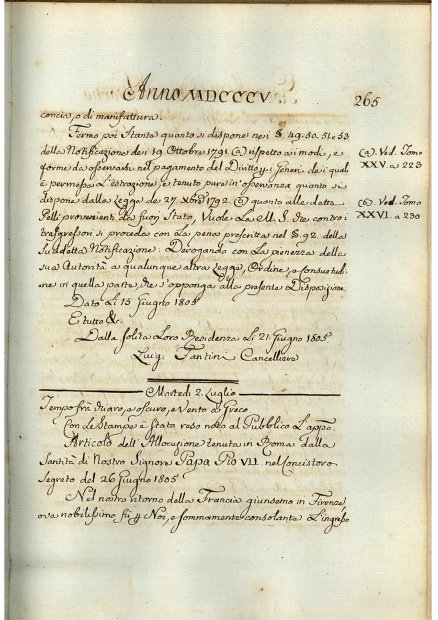 Anno MDCCCV.
265
concia, o di manifattura.
Fermo poi stante quanto si dispone nei §. 49. 50. 51 e 53
della Notificazione dei 19 Ottobre 1791 (a) rispetto ai modi, e
forme da osservarsi nel pagamento del Diritto per i generi dei quali
è permessa l'estrazione, e tenuto pure in osservanza quanto si
dispone dalla Legge de' 27 Xbre 1792. (b) quanto alle dette
Pelli provenienti da fuori Stato, Vuole La M. S. che contro i
trasgressori si proceda con La pena prescritta nel §. 92 della
suddetta Notificazione: Derogando con La pienezza della
sua Autorità a qualunque altra Legge, Ordine, o consuetudi-
ne in quella parte, che s'opponga alla presente Disposizione.
Dato Li 15 Giugno 1805
E tutto &c.
Dalla solita Loro Residenza Li 21 Giugno 1805
Luigi Fantini Cancelliere
(a). Ved. Tomo
XXV. a 223
(b). Ved. Tomo
XXVI. a 230
Martedì 2. Luglio
Tempo frà chiaro, e oscuro, e Vento a Greco.
Con le Stampe è stato reso noto al Pubblico L'appo
Articolo dell'Allocuzione tenuta in Roma dalla
Santità di Nostro Signore Papa Pio VII. nel Concistoro
Segreto del 26 Giugno 1805
Nel nostro ritorno della Francia giunsemo in Firenze,
ove nobilissimo fu per Noi, e sommamente consolante L'ingresso